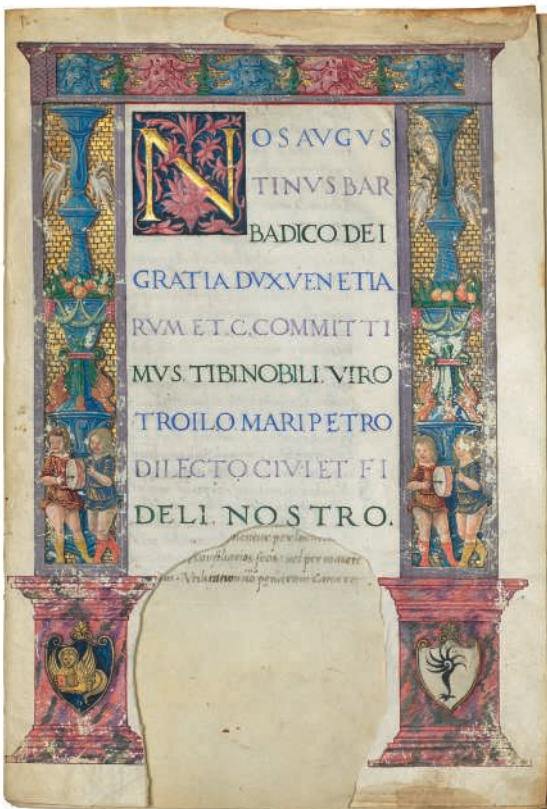 NOSAVGVS
TINVS BAR
BADICO DEI
GRATIA DVX VENETIA
RVM ET C. COMMITTI
MVS. TIBI NOBILI. VIRO
TROILO MARIPETRO
DILECTO CIVI ET FI
DELI. NOSTRO.